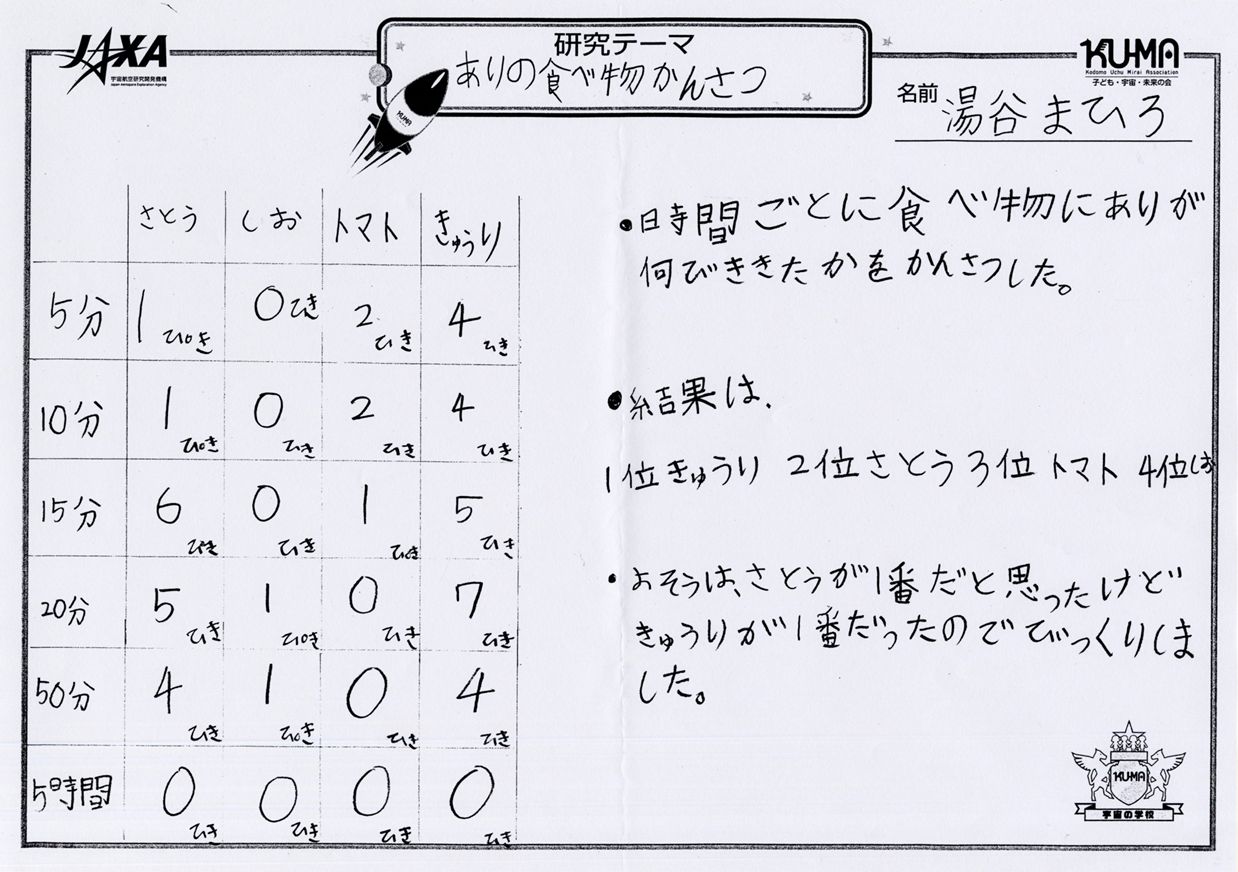 JAXA
宇宙航空研究開発機構
Japan Aerospace Exploration Agency
研究テーマ
ありの食べ物かんさつ
KUMA
KU-MA
Kodomo Uchu Mirai Association
子ども・宇宙・未来の会
名前 湯谷まひろ
さとう しお トマト きゅうり
5分 1ぴき 0ひき 2ひき 4ひき
10分 1ぴき 0ひき 2ひき 4ひき
15分 6ぴき 0ひき 1ぴき 5ひき
20分 5ひき 1ぴき 0ひき 7ひき
50分 4ひき 1ぴき 0ひき 4ひき
5時間 0ひき 0ひき 0ひき 0ひき
・時間ごとに食べ物にありが
何びききたかをかんさつした。
・結果は、
1位きゅうり 2位さとう 3位トマト 4位しお
・よそうは、さとうが1番だと思ったけど
きゅうりが1番だったのでびっくりしま
した。
KU-MA
宇宙の学校